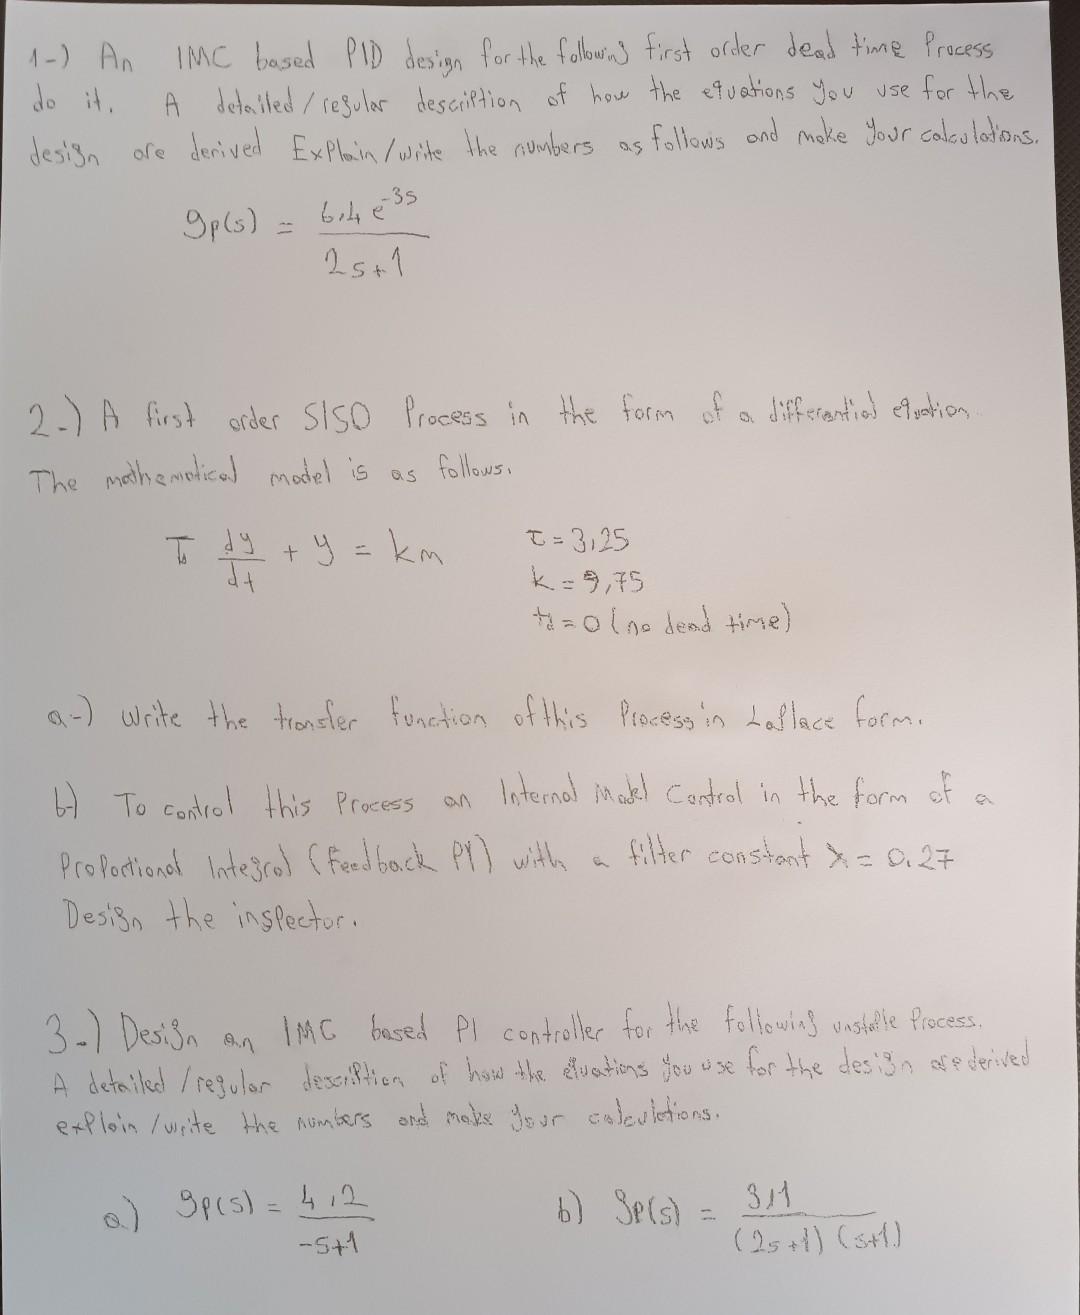 1-) An IMC based PID design for the following first order dead time Process
do it. A detailed / regular description of how the equations you use for the
design are derived Explain / write the numbers as follows and make your calculations.
gp(s) = 6,4 e^-3s / 2s+1
2-) A first order SISO Process in the form of a differential equation.
The mathematical model is as follows.
τ dy/dt + y = km τ = 3,25
k = 9,75
td = 0 (no dead time)
a-) write the transfer function of this Process in Laplace form.
b-) To control this Process an Internal Model Control in the form of a
Proportional Integral (Feedback PI) with a filter constant λ = 0.27
Design the inspector.
3-) Design an IMC based PI controller for the following unstable Process.
A detailed / regular description of how the equations you use for the design are derived
explain / write the numbers and make your calculations.
a) gp(s) = 4,2 / -s+1 b) gp(s) = 3,1 / (2s+1) (s+1)